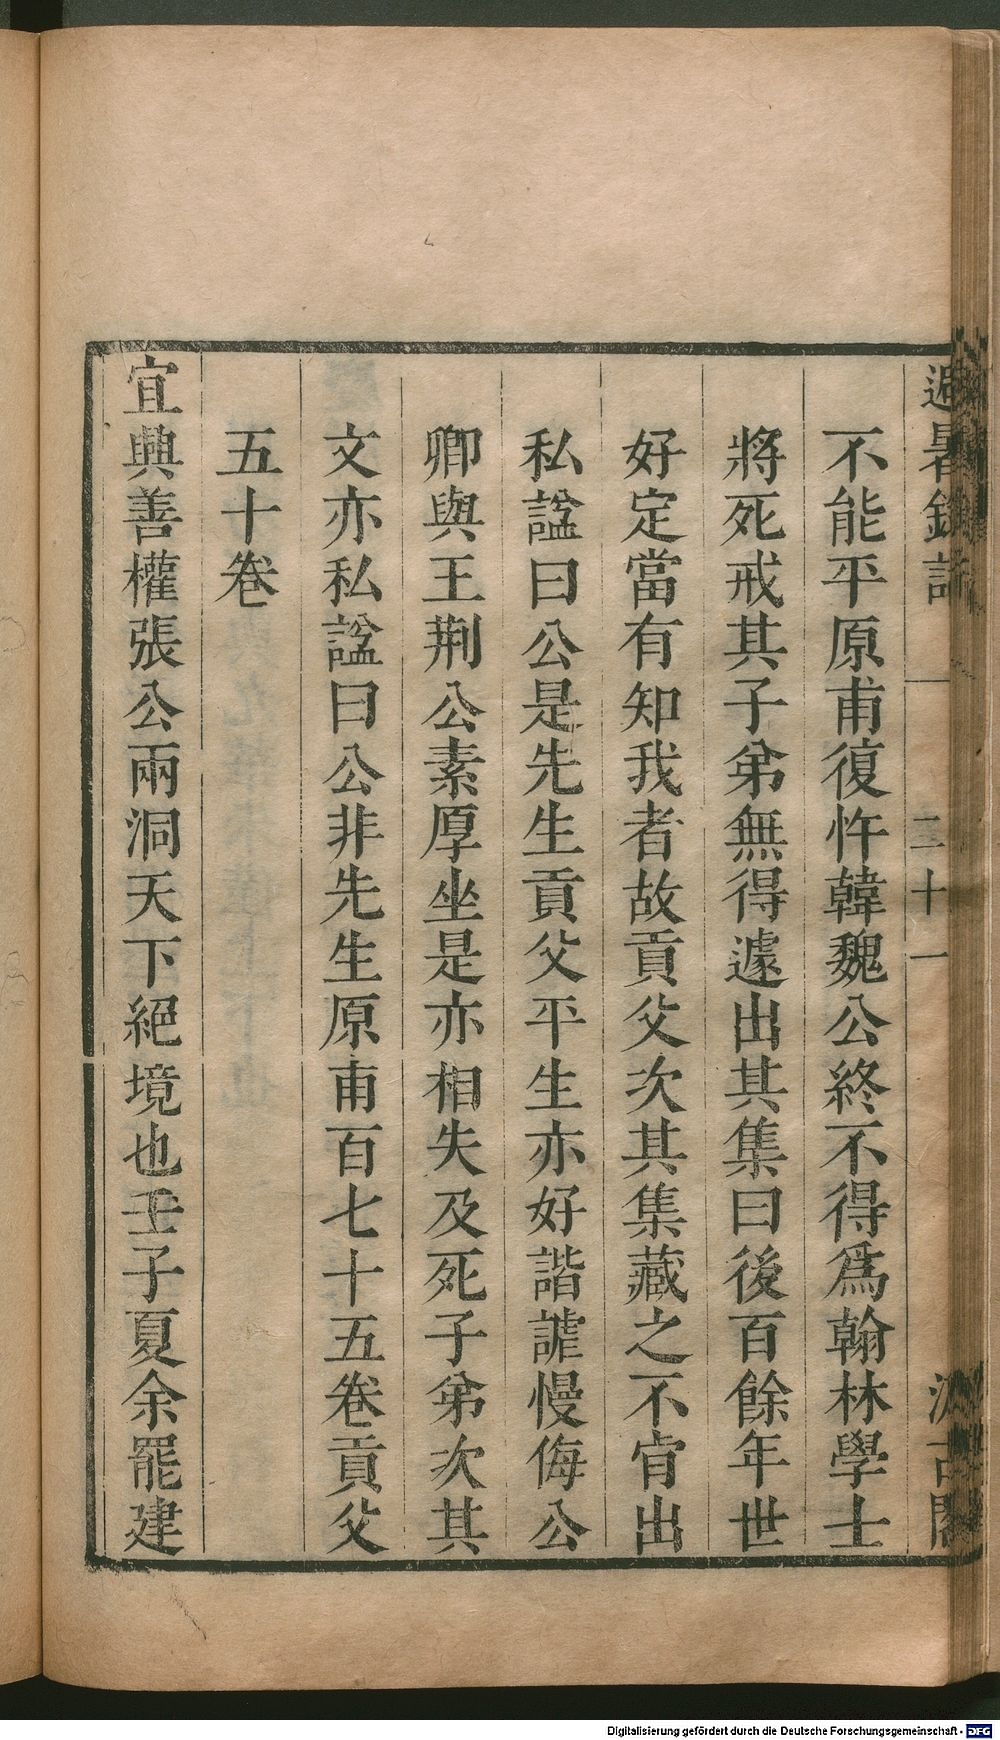 避暑錄話
二十一
汲古閣
不能平原甫復忤韓魏公終不得爲翰林學士
將死戒其子弟無得遽出其集曰後百餘年世
好定當有知我者故貢父次其集藏之不肯出
私諡曰公是先生貢父平生亦好諧謔慢侮公
卿與王荆公素厚坐是亦相失及死子弟次其
文亦私諡曰公非先生原甫百七十五卷貢父
五十卷
宜興善權張公兩洞天下絕境也壬子夏余罷建
Digitalisierung gefördert durch die Deutsche Forschungsgemeinschaft - DFG